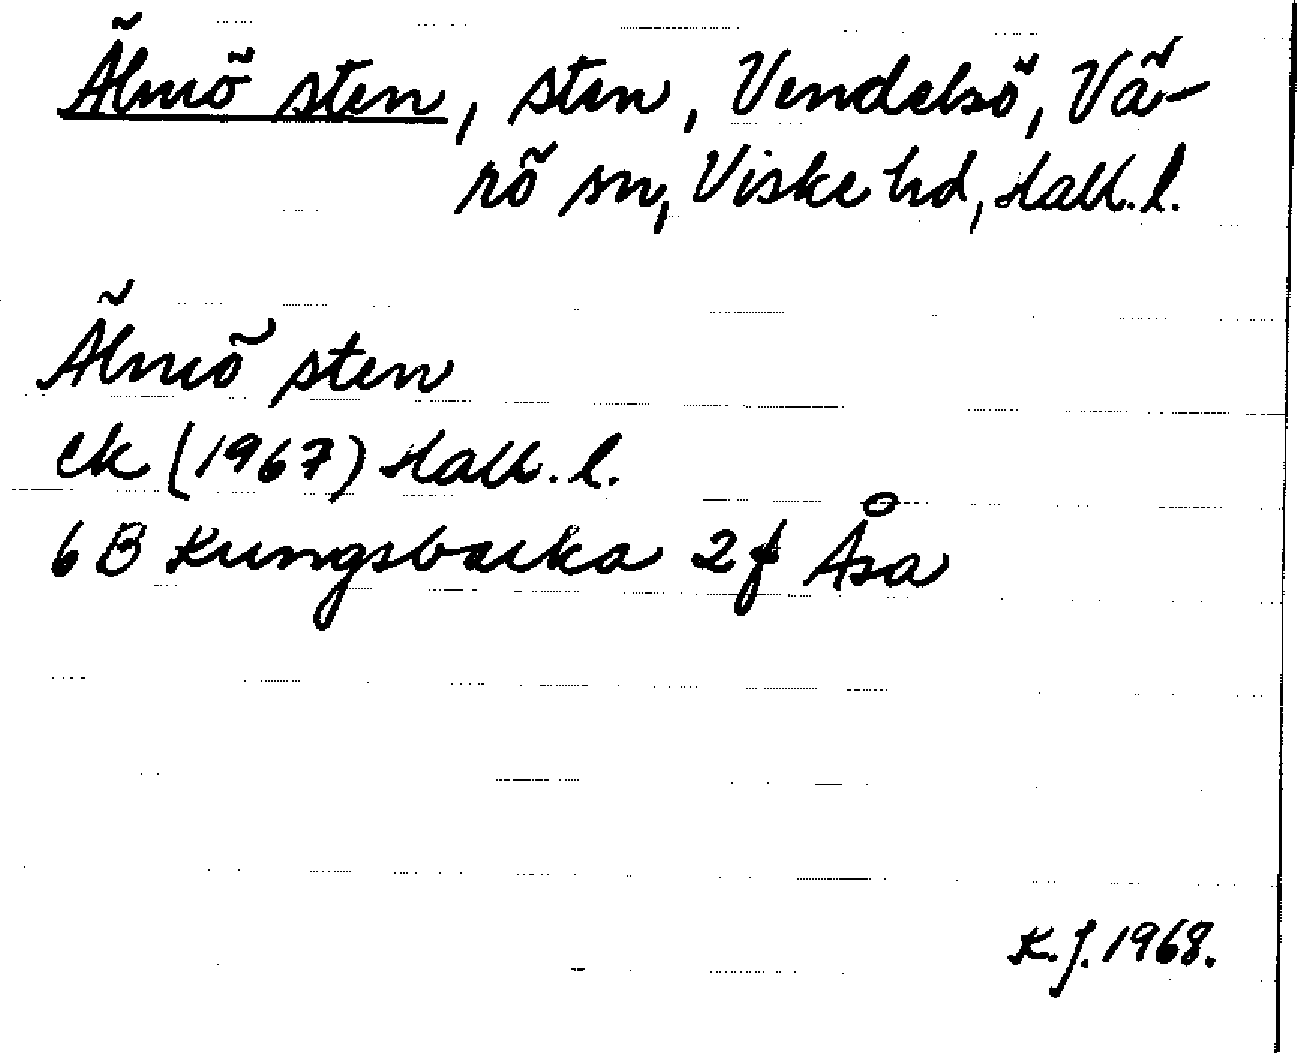 Älmö sten, sten, Vendelsö, Vä-
rö sn, Viske hd, Hall. l.
Älmö sten
ek (1967) Hall. l.
6 B Kungsbacka 2 f Åsa
K. J. 1968.